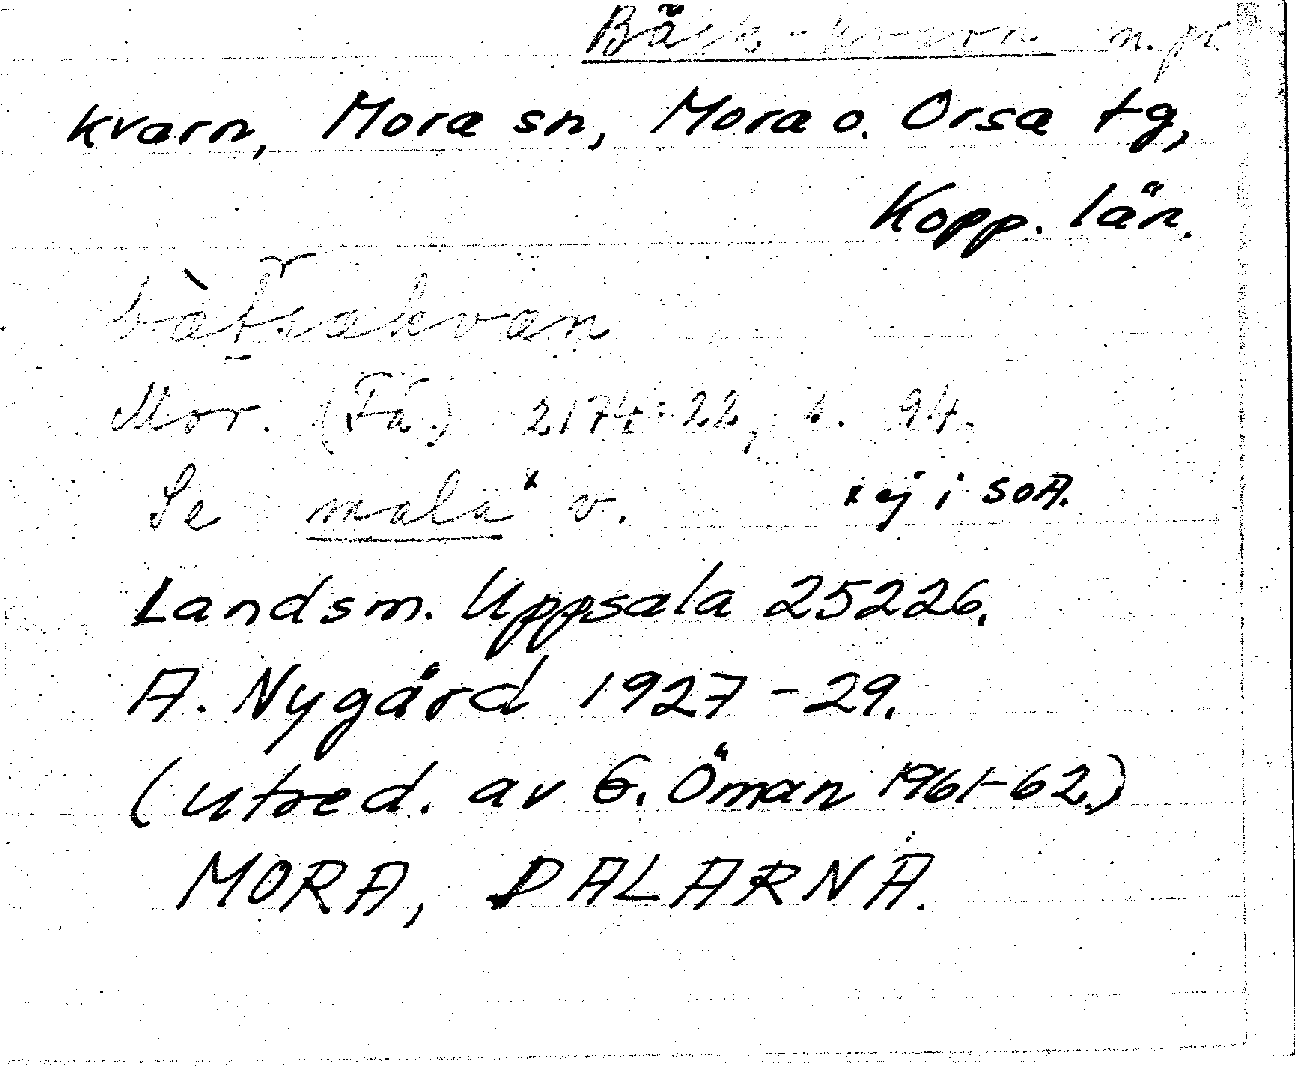 Bäck-kvarn n. pr
kvarn, Mora sn, Mora o. Orsa tg,
Kopp. län.
Mor. (Få.) 2174:22, s. 94.
Se mala x v. x ej i SOA.
Landsm. Uppsala 25226.
A. Nygård 1927-29.
(utred. av G. Öman 1961-62.)
MORA, DALARNA.